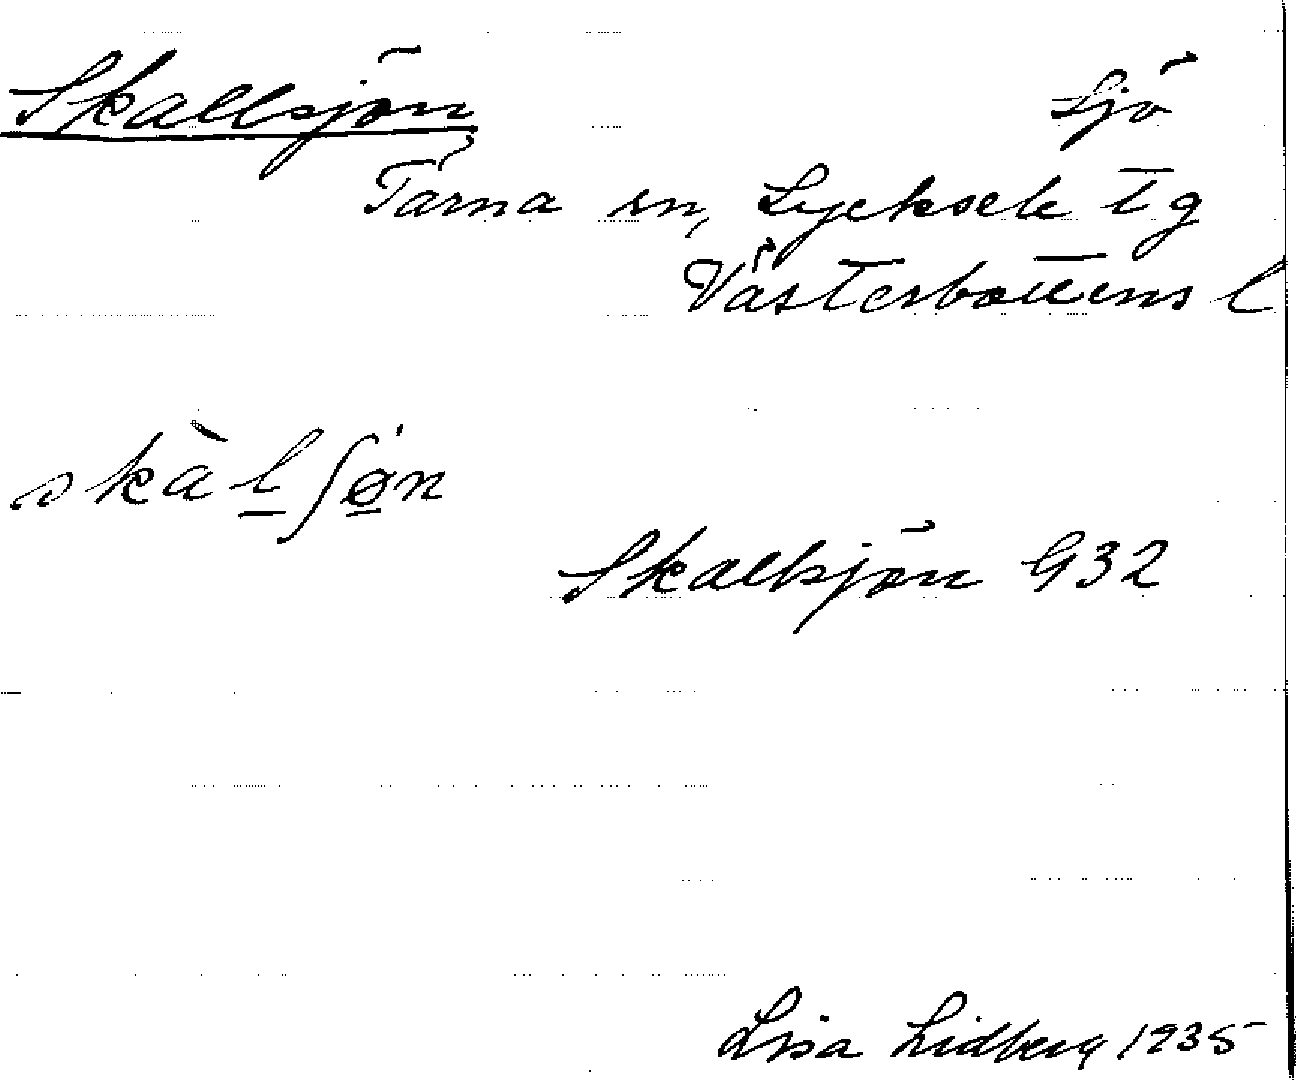 Skallsjön Sjö
Tärna sn, Lycksele tg
Västerbottens l
skàlʃø̀n
Skallsjön G32
Lisa Lidberg 1935